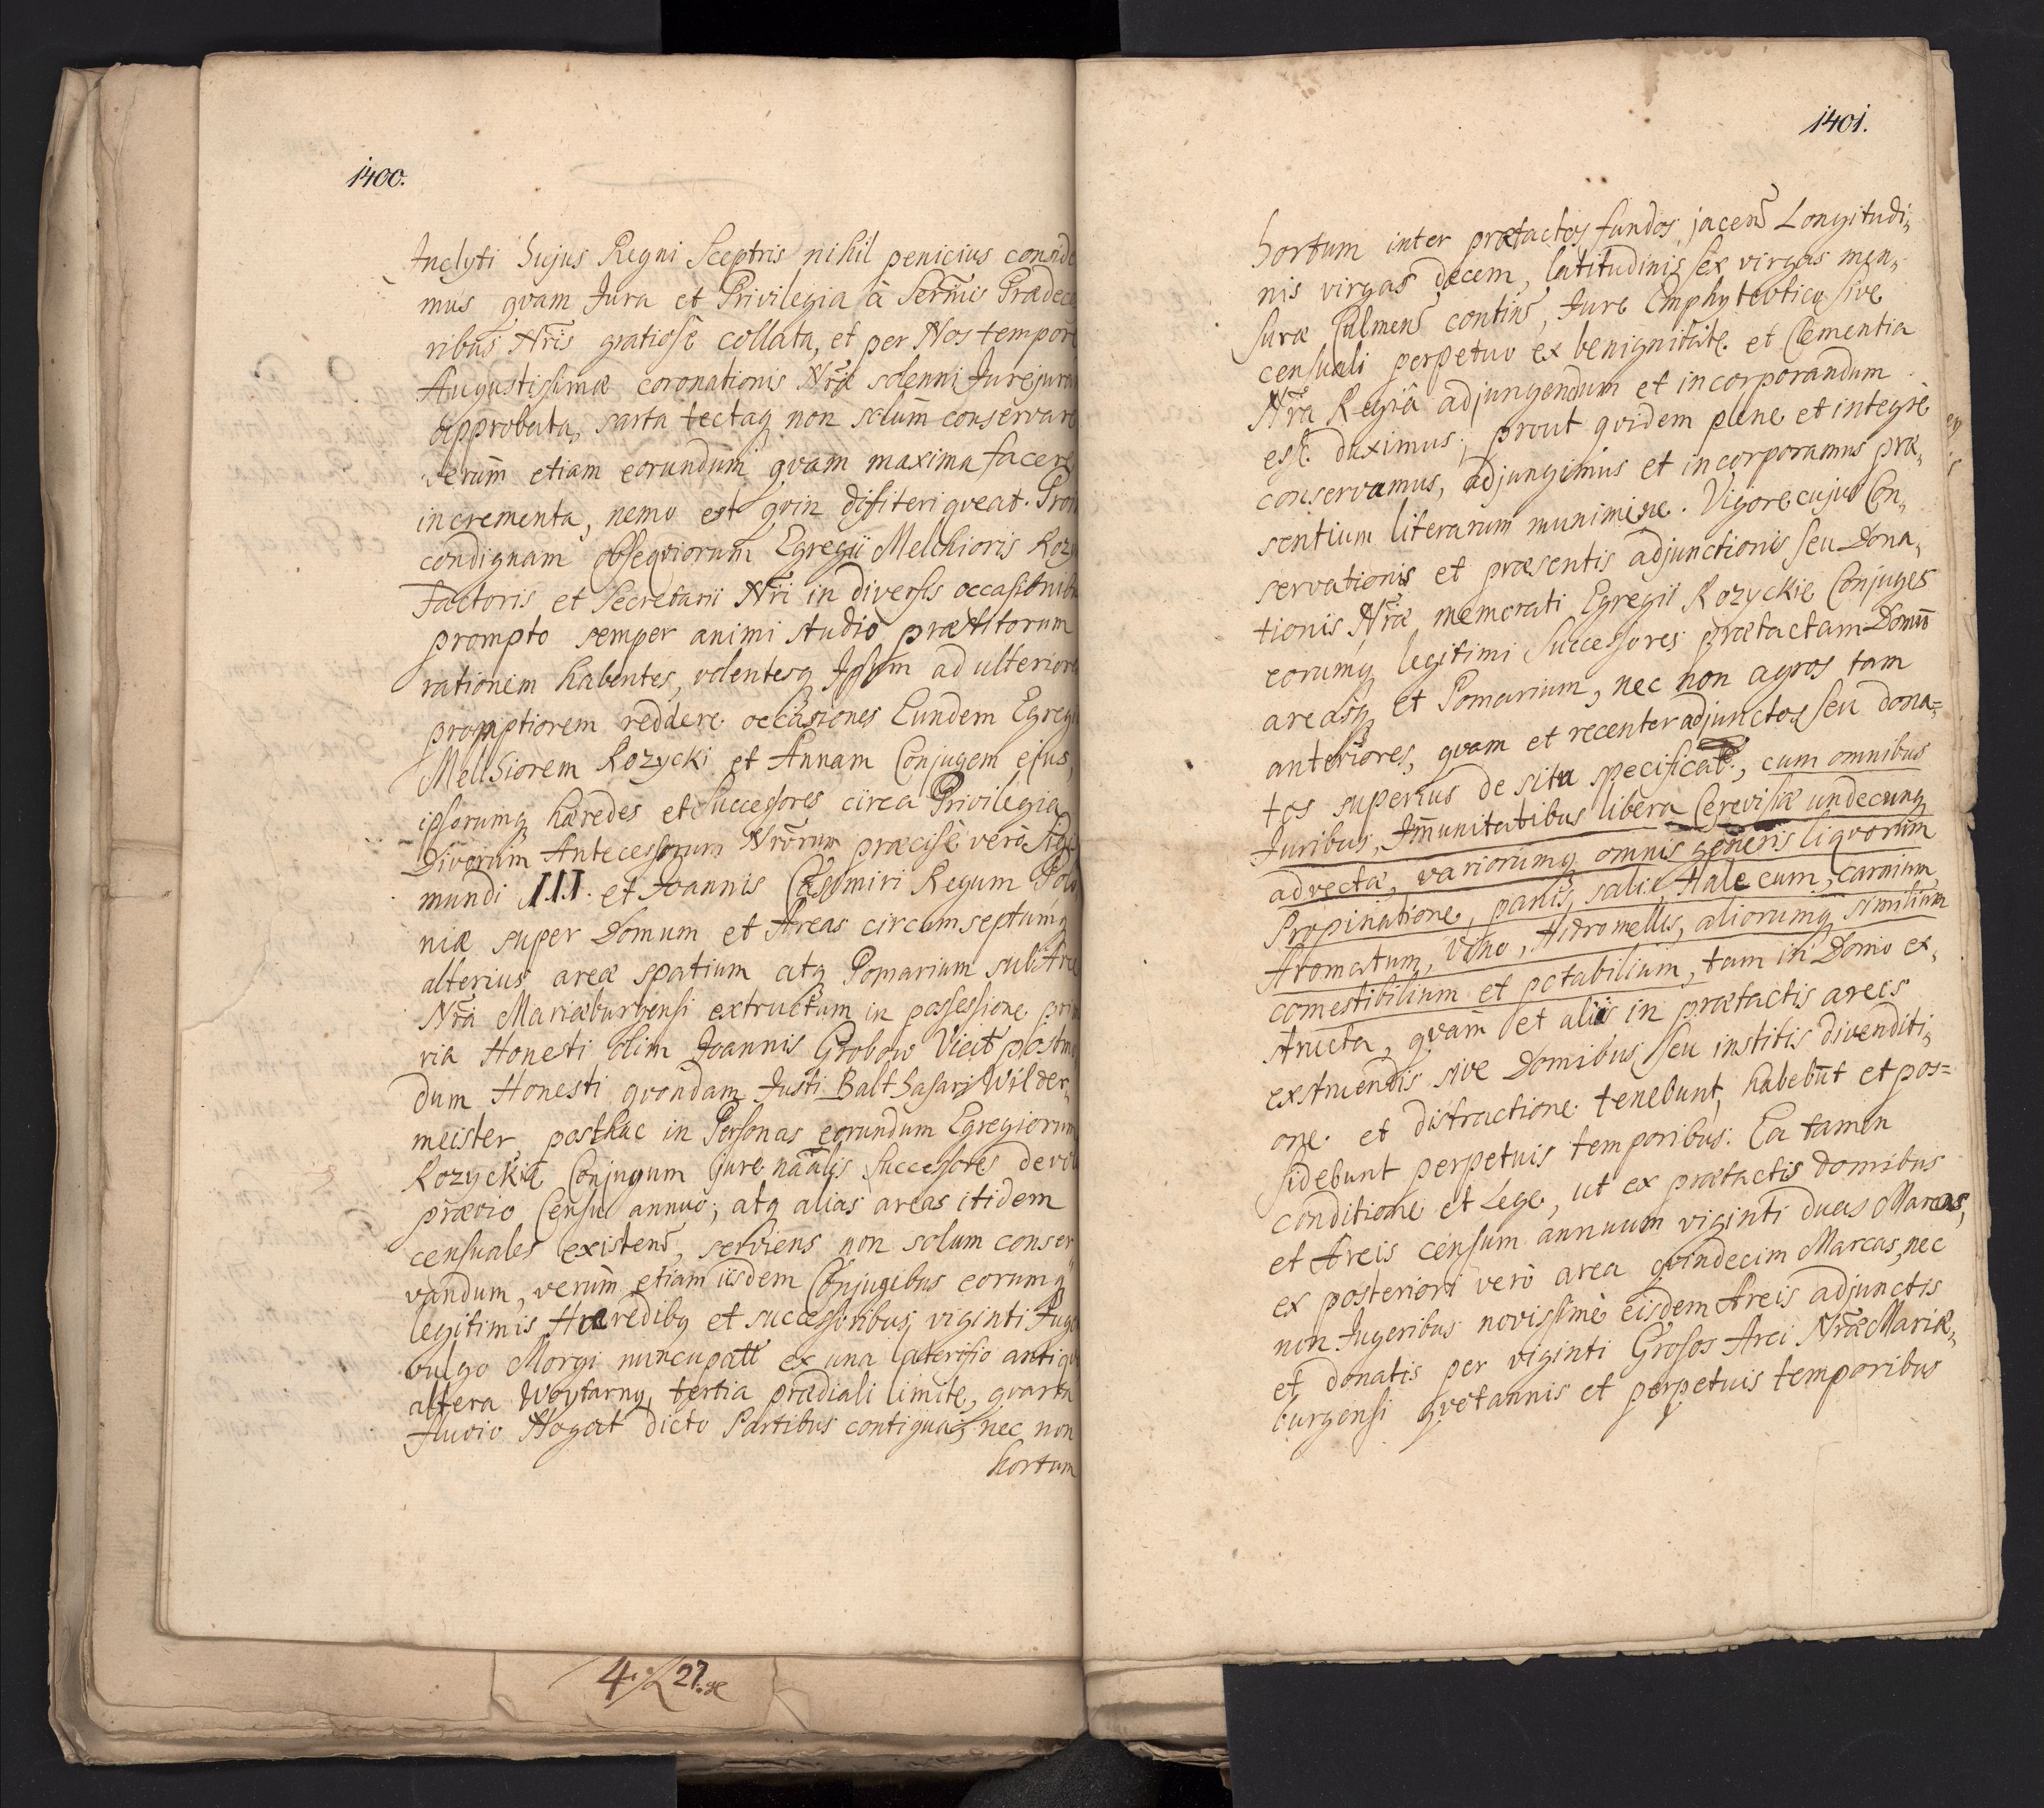 1400.
Inclyti hujus Regni Sceptris nihil penicius conside
mus qvam Jura et Privilegia à Sermis Prædece
ribus Nris gratiosè collata, et per Nos tempore
Augustissimæ coronationis Nræ solenni Jurejuran
approbata, sarta tectaq non solum conservare
verum etiam eorundum qvam maxima facere
incrementa, nemo est qvin difiteri qveat. Proin
condignam obseqviorum Egregii Melchioris Rozy
Factoris et Secretarii Nri in diversis occasionibu
prompto semper animi studio præstitorum
rationem habentes, volentesq Ipsum ad ulteriores
promptiorem reddere occasiones Eundem Egregiu
Melchiorem Rozycki et Annam Conjugem ejus,
ipsorumq hæredes et Successores circa Privilegia
Divorum Antecessorum Nrorum præcisè verò Sigis
mundi III. et Joannis Casimiri Regum Polo
niæ super Domum et Areas circumseptumq
alterius areæ spatium atq Pomarium sub Arce
Nra Mariæburgensi extructum in possessione prim
ria Honesti olim Joannis Grobow Vicit postmo
dum Honesti qvondam Justi Balthasari Wilder„
meister, posthac in Personas eorundum Egregiorum
Rozyckie Conjugum jure naalis Successores devol
prævio Censu annuo; atq alias areas itidem
censuales existens, serviens non solum conser
vandum, verùm etiam iisdem Conjugibus eorumq
legitimis Hæredibq et successoribus, viginti Juge
vulgo Morgi nuncupatt ex una laterifio antiqvo
altera Woytarny, tertia prædiali limite, qvarta
fluvio Nogat dicto Partibus contigua, nec non
hortum
4. 27.
1401.
hortum inter prætactos fundos jacens Longitudi„
nis virgas decem, latitudinis sex virgas men„
suræ Culmens contins, Jure Emphytevtico sive
censuali perpetuo ex benignitate et Clementia
Nra Regiâ adjungendum et incorporandum
esse duximus; prout qvidem plene et integrè
conservamus, adjungimus et incorporamus præ„
sentium literarum munimine. Vigore cujus Con„
servationis et præsentis adjunctionis seu Dona„
tionis Nræ memorati Egregii Rozyckie Conjuges
eorumq legitimi Successores prætactam Domũ
areasq et Pomarium, nec non agros tam
anteriores, qvam et recenter adjunctos seu dona=
tos superius de situ specificat., cum omnibus
Juribus, Immunitatibus libera Cerevisiæ undecunq
advectæ, variorumq omnis generis liqvorum
Propinatione, panis, salis, Halecum, carnium,
Aromatum, Vino, Hidromellis, aliorumq similium
comestibilium et potabilium, tam in Domo ex„
structa, qvam et aliis in prætactis areis
exstruendis sive Domibus, seu institis divenditi„
one et distractione tenebunt, habebunt et pos=
sidebunt perpetuis temporibus. Ea tamen
conditione et Lege, ut ex prætactis domibus
et Areis censum annuum viginti duas Marcas,
ex posteriori verò area qvindecim Marcas, nec
non Jugeribus novissimè eisdem Areis adjunctis
et donatis per viginti Grosos Arci Nræ Mariæ„
burgensi qvotannis et perpetuis temporibus